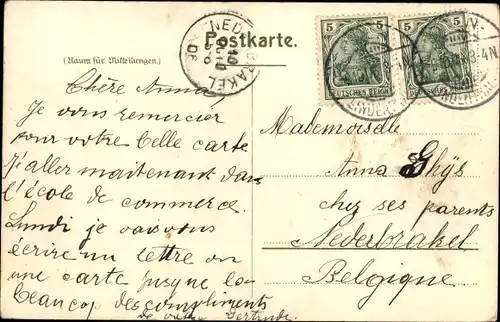 Postkarte.
(Raum für Mitteilungen.)
5 5
5 5
DEUTSCHES REICH
DEUTSCHES REICH
Chère Anna
Je vous remercier
pour votre belle carte
J'aller maitenant dans
l'école de commerce.
Lundi je vous
écrire un lettre on
une carte jusque la
beaucop des compliments
de votre Gertrude.
Mademoiselle
Anna Ghijs
chez ses parents
Nederbrakel
Belgique